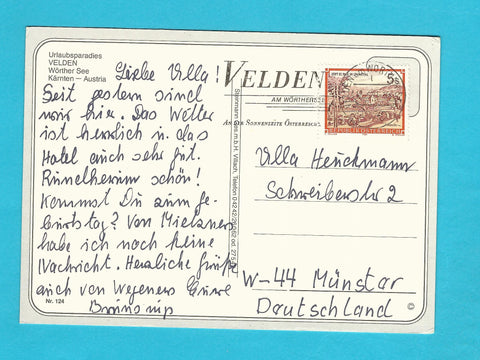 Urlaubsparadies
VELDEN
Wörther See
Kärnten – Austria
Liebe Ulla!
Seit gestern sind
wir hier. Das Wetter
ist herrlich u. das
Hotel auch sehr gut.
Rundherum schön!
Kommst Du zum Ge-
burtstag? Von
habe ich noch keine
Nachricht. Herzliche Grüße
auch von Wegeners Eure
Nr. 124
VELDEN
AM WÖRTHERSEE
AN DER SONNENSEITE ÖSTERREICHS
5 S
REPUBLIK ÖSTERREICH
Ulla Heuckmann
Schreiberstr 2
W-44 Münster
Deutschland
©